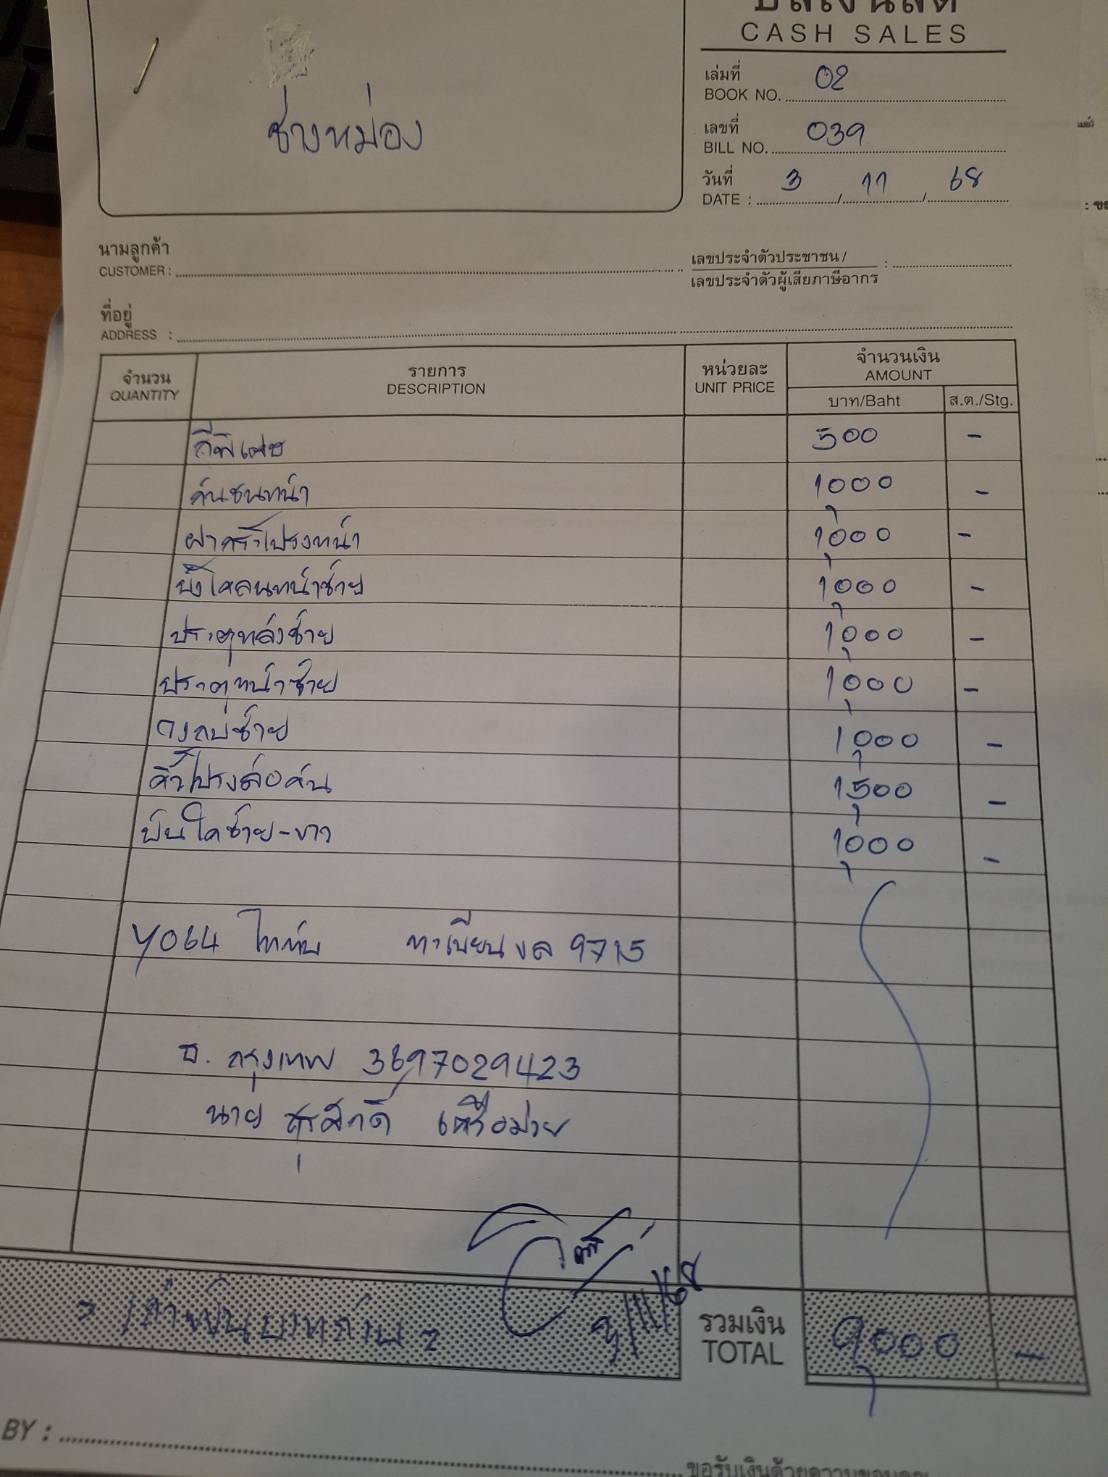 บิลเงินสด
CASH SALES
ช่างหม่อง
เล่มที่
BOOK NO. 02
เลขที่
BILL NO. 039
วันที่
DATE : 3 / 11 / 68
นามลูกค้า
CUSTOMER :
เลขประจำตัวประชาชน /
เลขประจำตัวผู้เสียภาษีอากร :
ที่อยู่
ADDRESS :
จำนวน รายการ หน่วยละ จำนวนเงิน
QUANTITY DESCRIPTION UNIT PRICE AMOUNT
บาท/Baht ส.ต./Stg.
สีพิเศษ 500 -
กันชนหน้า 1000 -
ฝากระโปรงหน้า 1,000 -
บังโคลนหน้าซ้าย 1,000 -
ประตูหลังซ้าย 1,000 -
ประตูหน้าซ้าย 1,000 -
ซ้าย 1,000 -
1,500 -
บันไดซ้าย-ขวา 1,000 -
Y064 ไททัน ทะเบียน ขล 9715
ธ. กรุงเทพ 3697029423
นาย สุรศักดิ์
= เก้าพันบาทถ้วน =
รวมเงิน
TOTAL 9,000 -
BY :
ขอรับเงินด้วยความขอบคุณ